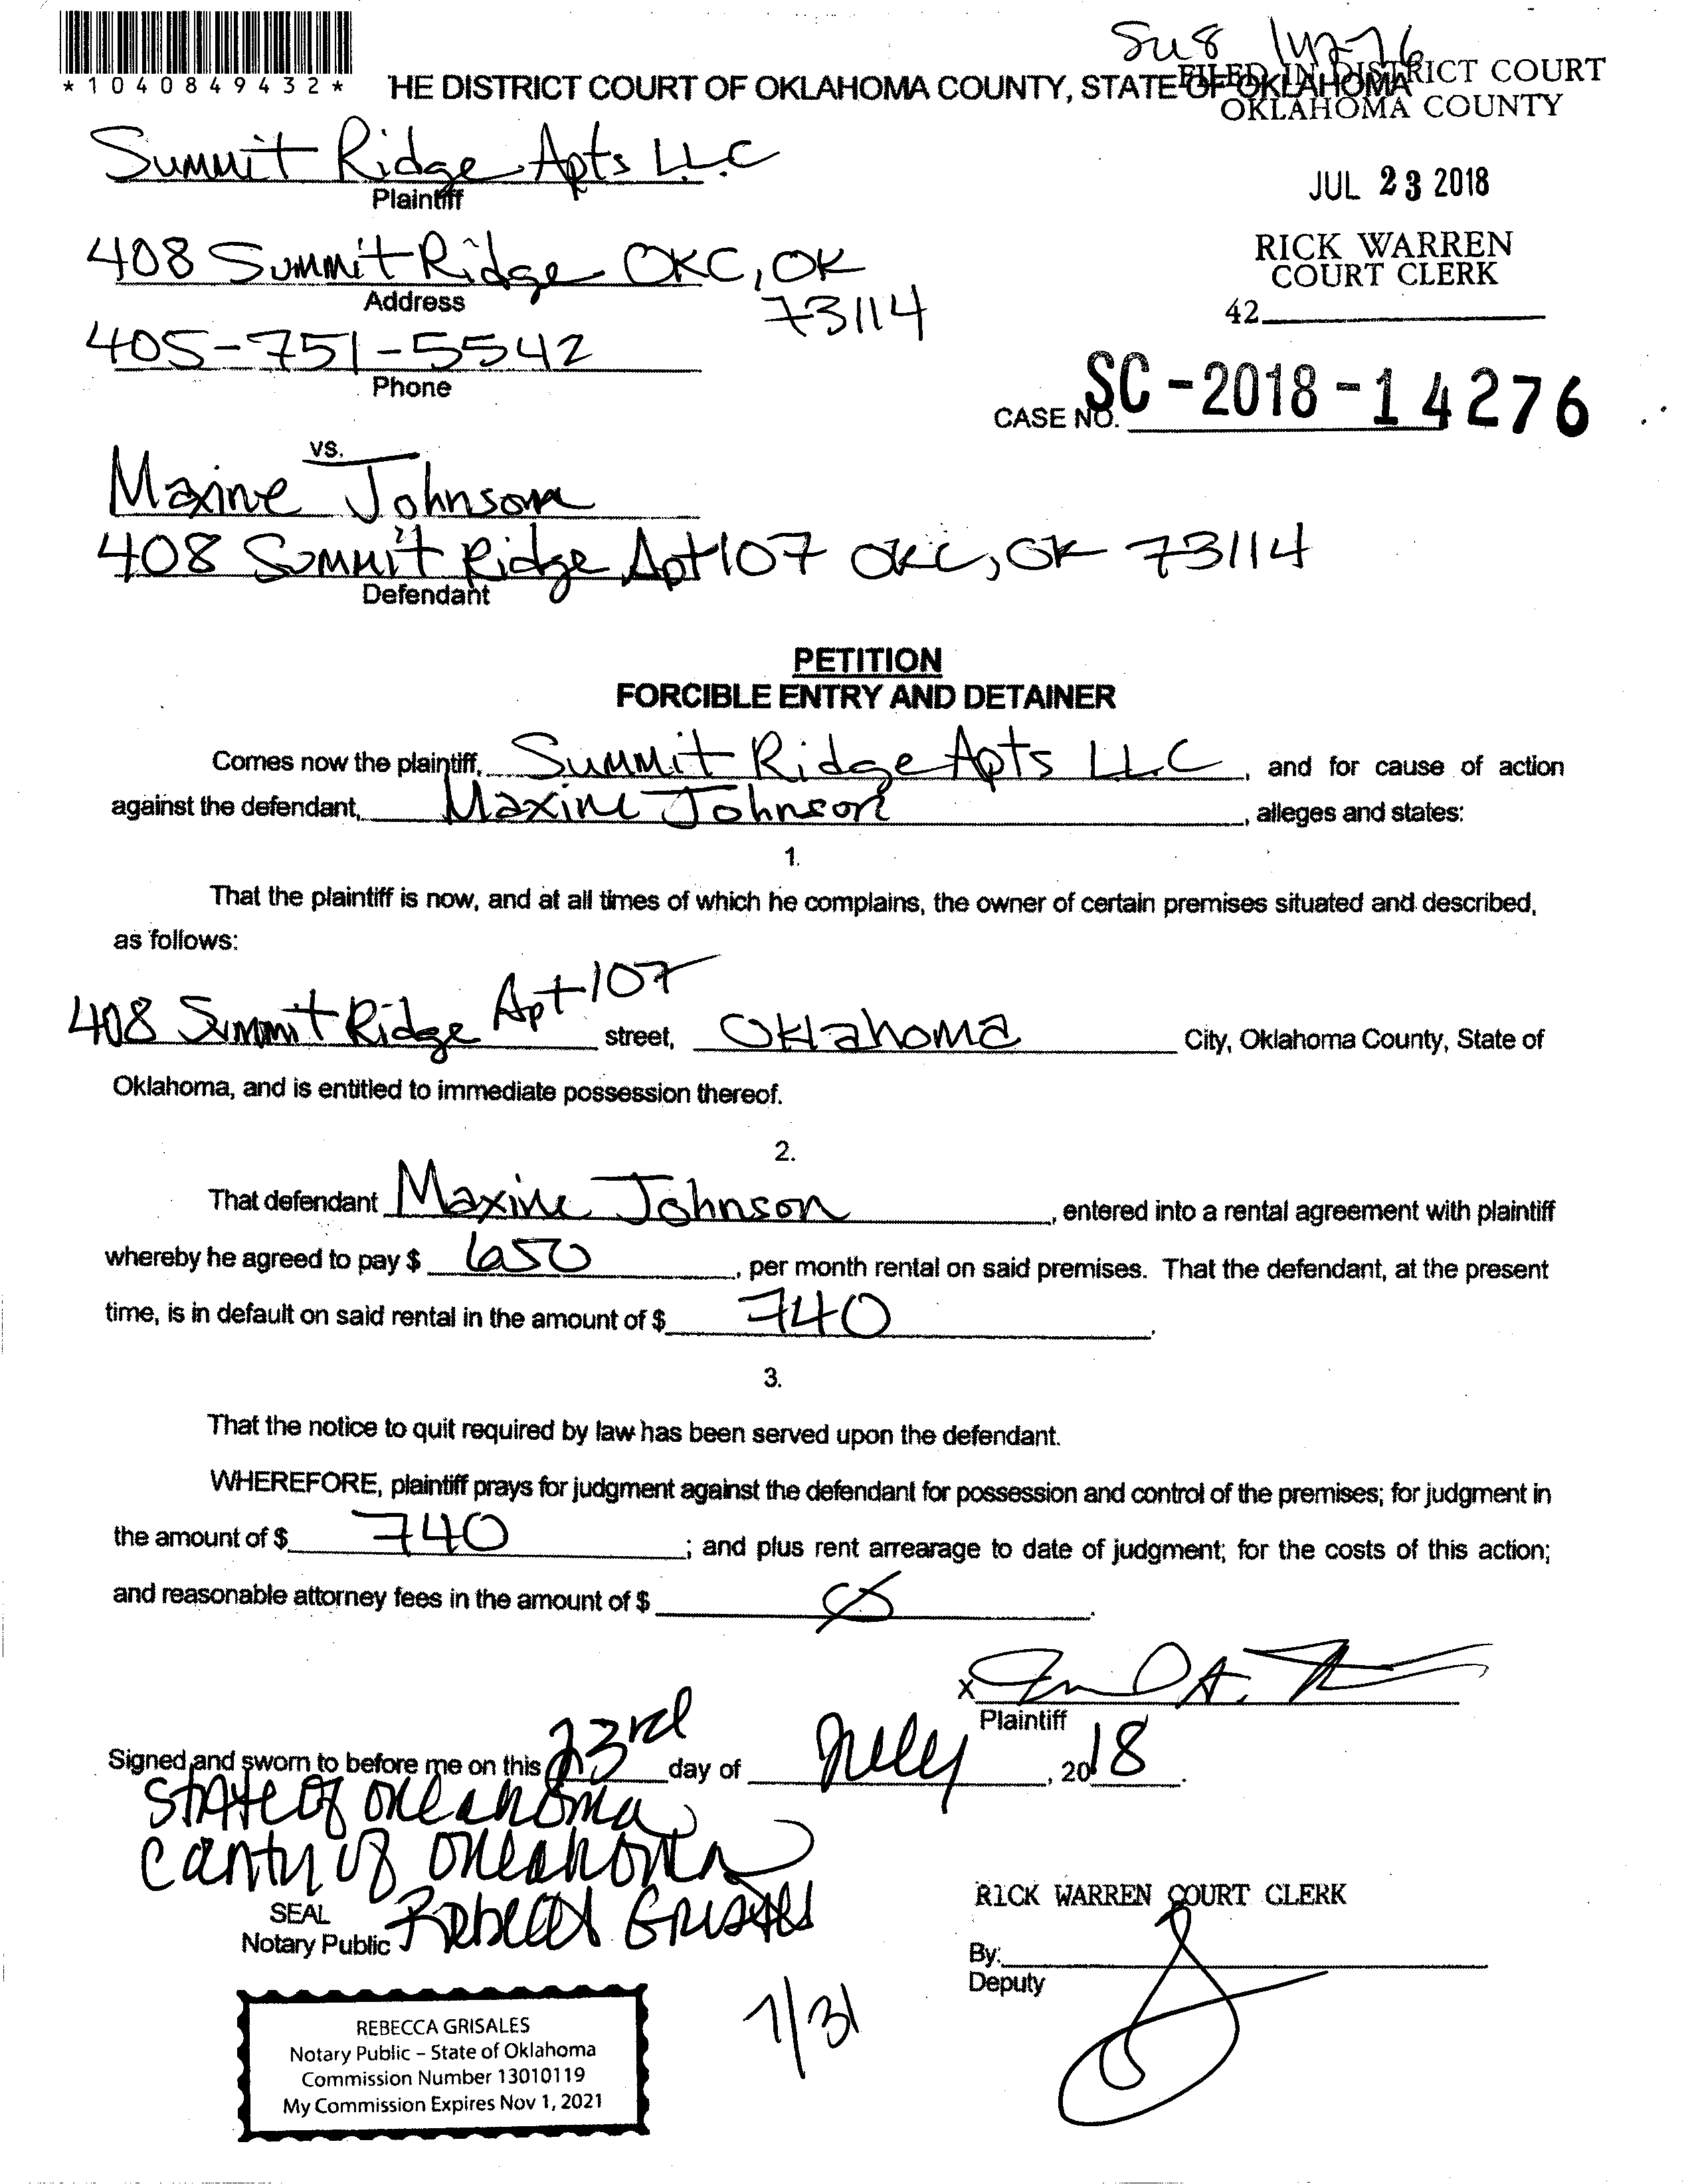 *1040849432*
HE DISTRICT COURT OF OKLAHOMA COUNTY, STATE OF OKLAHOMA
FILED IN DISTRICT COURT
OKLAHOMA COUNTY
Summit Ridge Apts LLC
Plaintiff
JUL 23 2018
408 Summit Ridge OKC, OK
73114
Address
RICK WARREN
COURT CLERK
42
405-751-5542
Phone
CASE NO. SC-2018-14276
VS.
Maxine Johnson
408 Summit Ridge Apt 107 OKC, OK 73114
Defendant
PETITION
FORCIBLE ENTRY AND DETAINER
Comes now the plaintiff, Summit Ridge Apts LLC, and for cause of action
against the defendant, Maxine Johnson, alleges and states:
1.
That the plaintiff is now, and at all times of which he complains, the owner of certain premises situated and described,
as follows:
408 Summit Ridge Apt 107 street, Oklahoma City, Oklahoma County, State of
Oklahoma, and is entitled to immediate possession thereof.
2.
That defendant Maxine Johnson, entered into a rental agreement with plaintiff
whereby he agreed to pay $ 650, per month rental on said premises. That the defendant, at the present
time, is in default on said rental in the amount of $ 740.
3.
That the notice to quit required by law has been served upon the defendant.
WHEREFORE, plaintiff prays for judgment against the defendant for possession and control of the premises; for judgment in
the amount of $ 740; and plus rent arrearage to date of judgment; for the costs of this action;
and reasonable attorney fees in the amount of $ Ø.
X
Plaintiff
Signed and sworn to before me on this 23rd day of July, 2018.
State of Oklahoma
County of Oklahoma
SEAL
Notary Public Rebecca Grisales
RICK WARREN COURT CLERK
By:
Deputy
7/31
REBECCA GRISALES
Notary Public – State of Oklahoma
Commission Number 13010119
My Commission Expires Nov 1, 2021